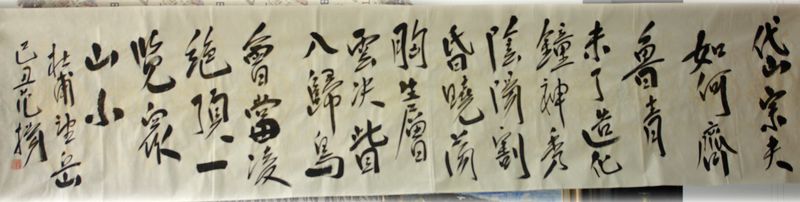 岱山宗夫
如何齊
魯青
未了造化
鐘神秀
陰陽割
昏曉蕩
胸生層
雲決眥
入歸鳥
會當凌
絕頂一
覽衆
山小
杜甫望岳
己丑范